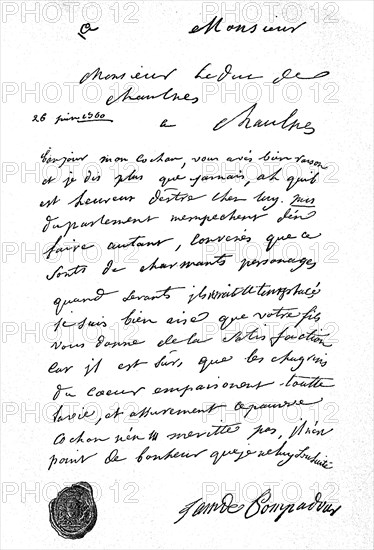 a Monsieur
Monsieur Le duc de
chaulnes
26 juin 1760 a chaulnes
bonjour mon cochon, vous avés bien raison
et je dis plus que jamais, ah quil
est heureux d'estre cher luy. mrs
du parlement mempechent d'en
faire autant, convenés que ce
sonts de charmants personages
quand
je suis bien aise que votre fils
vous donne de la satisfaction
car jl est sûr, que les chagrins
du coeur empoisonent toutte
la vie, et assurement ce pauvre
cochon n'en meritte pas, jl n'en
point de bonheur que je ne luy souhaite
de Pompadour
PHOTO 12